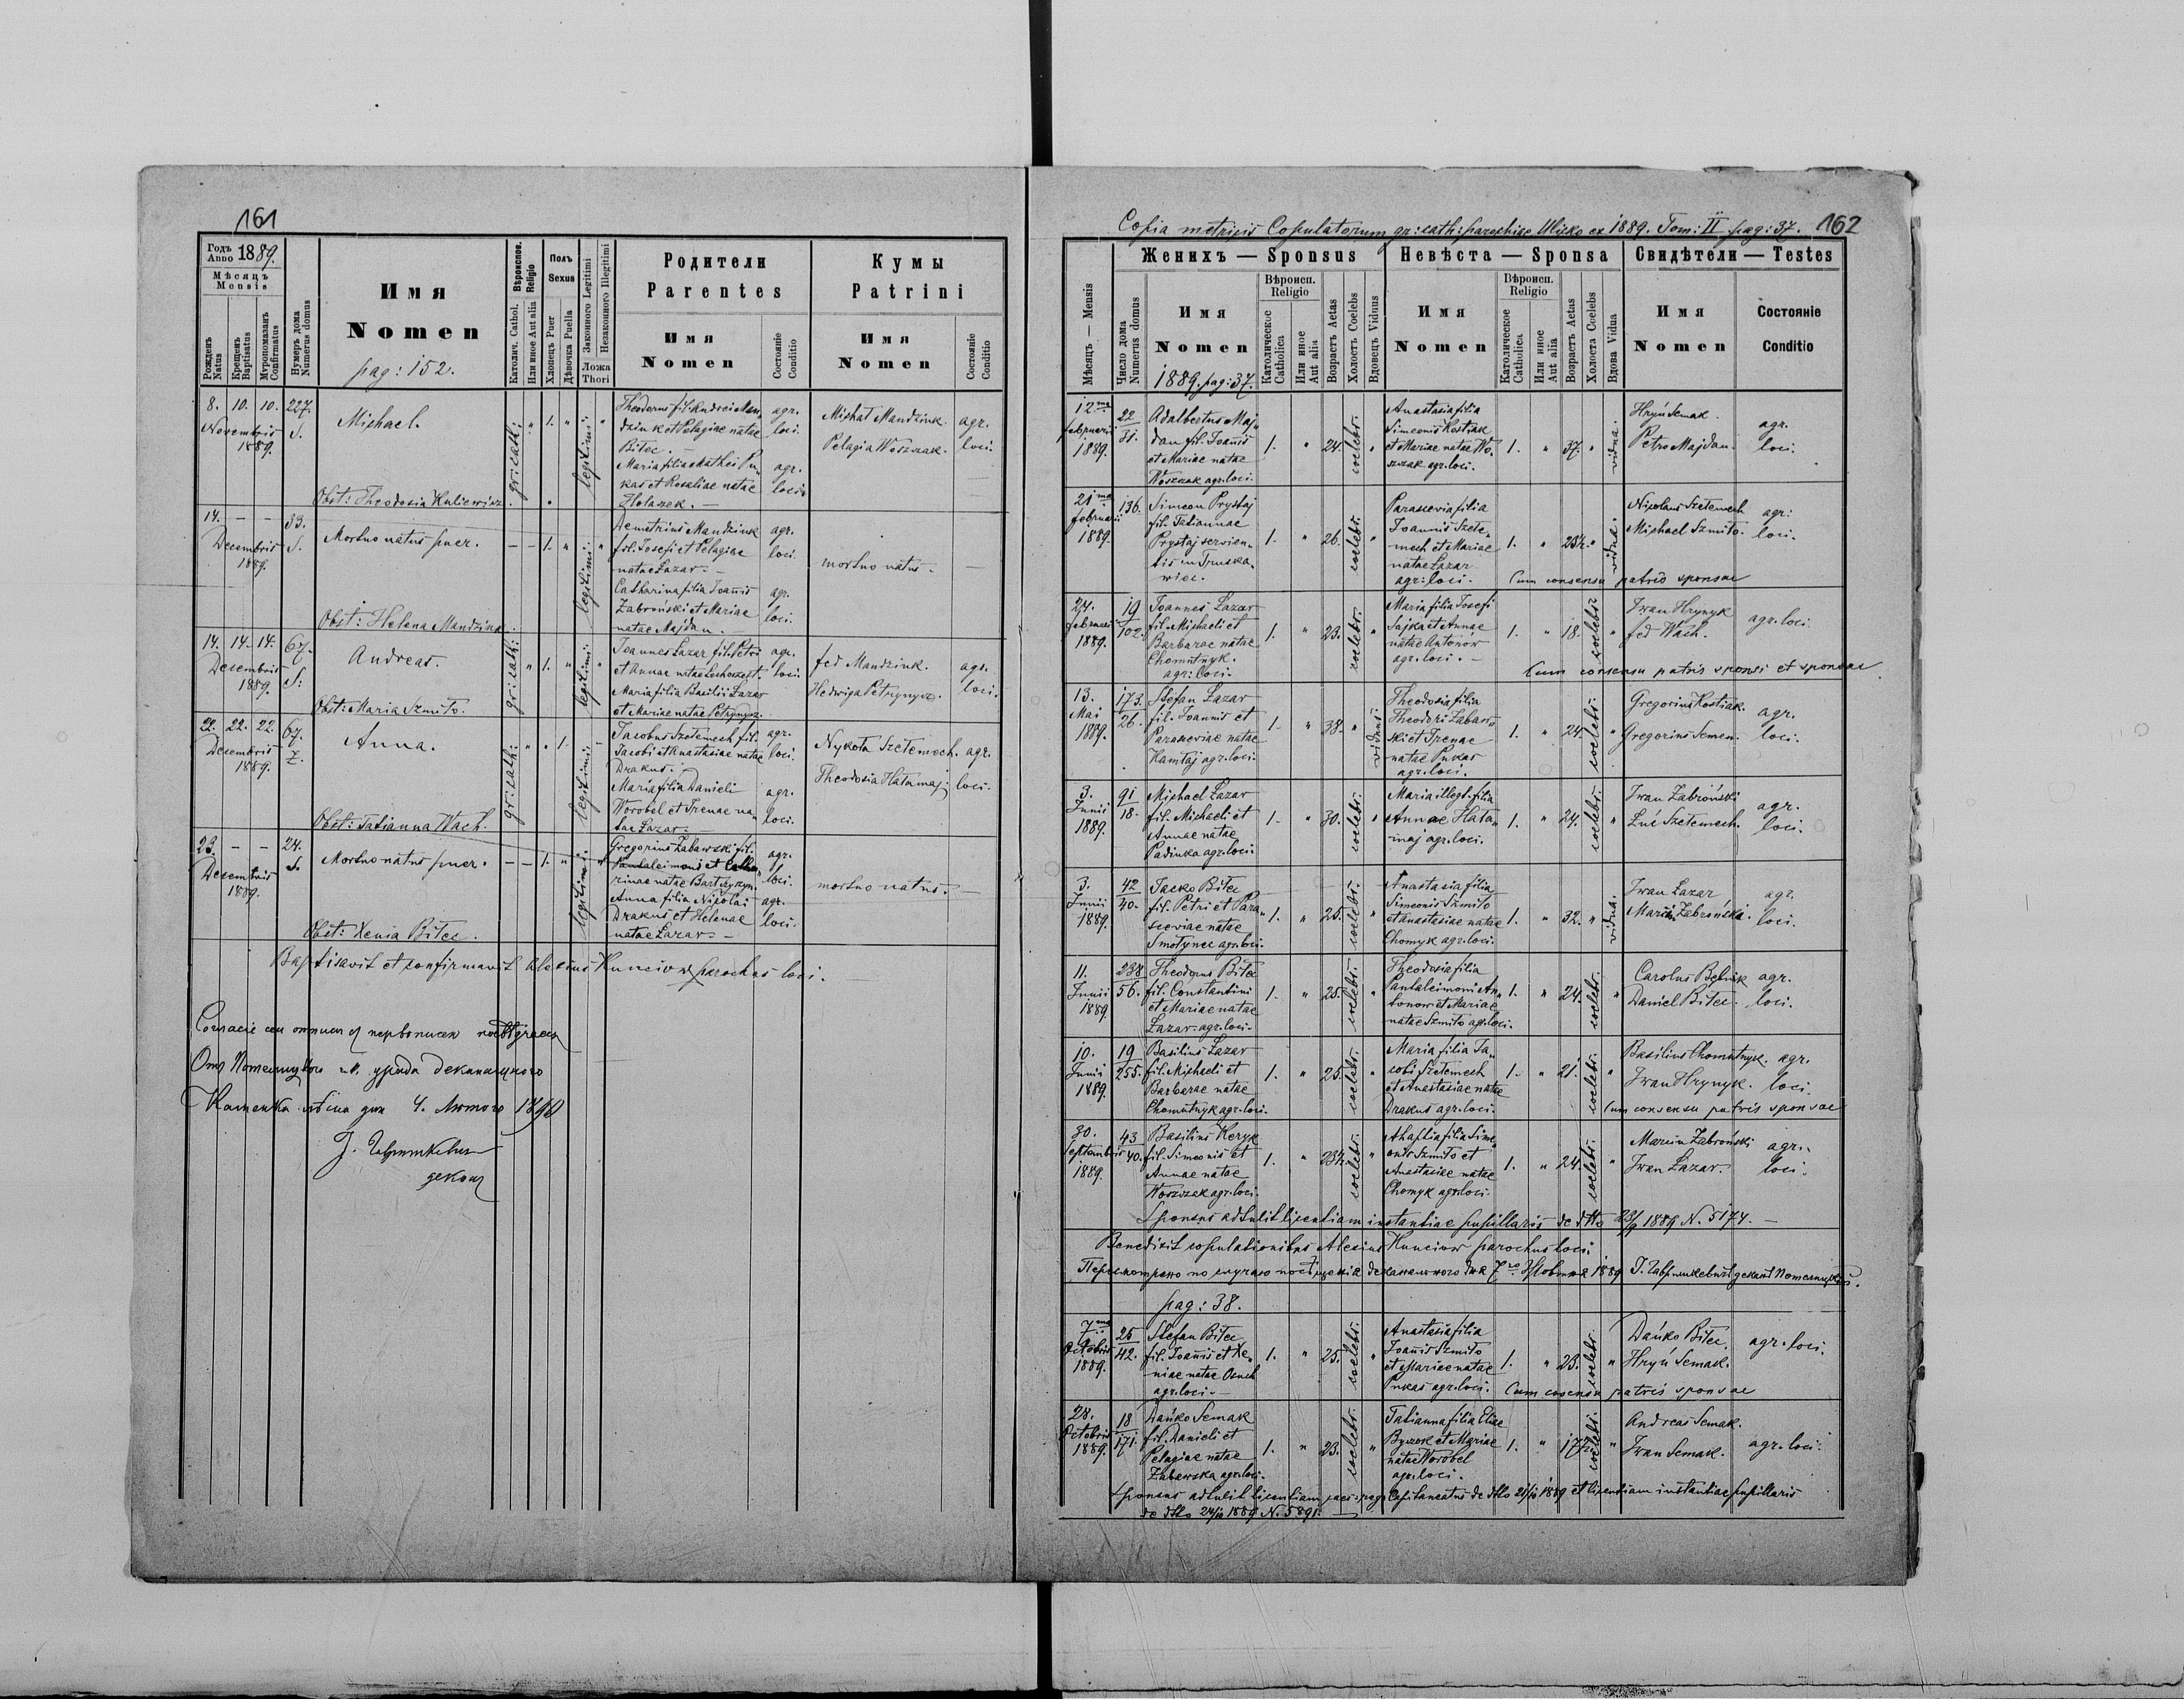 161
Годъ
Anno 1889.
Мѣсяцъ
Mensis
Рожденъ
Natus
Крещенъ
Baptisatus
Муропомазанъ
Confirmatus
Нумеръ дома
Numerus domus
Имя
Nomen
pag: 152.
Вѣроиспов.
Religio
Католич. Cathol.
Или иное Aut alia
Полъ
Sexus
Хлопецъ Puer
Дѣвочка Puella
Законного Legitimi
Незаконного Illegitimi
Ложа
Thori
Родители
Parentes
Имя
Nomen
Состояніе
Conditio
Кумы
Patrini
Имя
Nomen
Состояніе
Conditio
8. 10. 10. 227.
Novembris S.
1889.
Michael.
gr: cath:
" 1. " "
legitimi
Theodorus fil. Andrei Man„
dziuk et Pelagiae natae
Bitec. —
agr.
loci.
Maria filia Mathei Pu„
kas et Rosaliae natae
Holaszek. —
agr.
loci.
Michał Mandziuk.
Pelagia Woszczak.
agr.
loci.
Obst: Theodosia Kuliewicz.
14. — — 33.
Decembris S.
1889.
Mortuo natus puer.
— — 1. " "
legitimi
Demetrius Mandziuk
fil. Josefi et Pelagiae
natae Lazar. —
agr.
loci.
Catharina filia Joannis
Zabroński et Mariae
natae Majdan. —
agr.
loci.
mortuo natus. —
Obst: Helena Mandziuk
14. 14. 14. 67.
Decembris S:
1889.
Andreas.
gr: cath:
" 1. " "
legitimi
Joannes Lazar fil. Petri
et Annae natae
agr.
loci.
Maria filia Basilii Lazar
et Mariae natae Petrynycz.
Fed Mandziuk.
Hedwiga Petrynycz.
agr.
loci.
Obst: Maria Szmiło.
22. 22. 22. 67.
Decembris Z.
1889.
Anna.
gr: cath:
" " 1. —
legitimi
Jacobus Szetemech fil.
Jacobi et Anastasiae natae
Drakus.
agr.
loci.
Maria filia Danieli
Worobel et Irenae na„
tae Lazar. —
agr.
loci.
Nykoła Szetemech.
Theodosia Hałamaj
agr.
loci.
Obst: Tatianna Wach.
23. — — 24.
Decembris S.
1889.
Mortuo natus puer.
— — 1. " "
legitimi
Gregorius Zabawski fil.
Pantaleimoni et Catha„
rinae natae
agr.
loci.
Anna filia Nicolai
Drakus et Helenae
natae Lazar. —
agr.
loci.
mortuo natus. —
Obst: Xenia Bitec.
Baptisavit et confirmavit Alexius Kunciow parochus loci.
Каменка дня 4. Лютого 1890
декан
Copia metricis Copulatorum gr: cath: parochiae Ulicko ex 1889. Tom: II pag: 37. 162
Мѣсяцъ — Mensis
Число дома
Numerus domus
Женихъ — Sponsus
Имя
Nomen
1889. pag: 37.
Вѣроисп.
Religio
Католическое
Catholica
Или иное
Aut alia
Возрастъ Aetas
Холостъ Coelebs
Вдовецъ Viduus
Невѣста — Sponsa
Имя
Nomen
Вѣроисп.
Religio
Католическое
Catholica
Или иное
Aut alia
Возрастъ Aetas
Холоста Coelebs
Вдова Vidua
Свидѣтели — Testes
Имя
Nomen
Состояніе
Conditio
12ma
februarii
1889.
22
31.
Adalbertus Maj„
dan fil. Joannis
et Mariae natae
Woszczak agr. loci.
1. " 24. coelebs. "
Anastasia filia
Simeonis Kostiak
et Mariae natae Wo„
szczak agr. loci.
1. " 37. " vidua.
Hryń Semak.
Petro Majdan.
agr.
loci.
21ma
februarii
1889.
136.
Simeon Prystaj
fil. Tatiannae
Prystaj servien„
tis in Truska„
wiec.
1. " 26. coelebs. "
Parascevia filia
Joannis Szete„
mech et Mariae
natae Lazar
agr: loci.
1. " 25½. " vidua.
Nicolaus Szetemech
Michael Szmiło.
agr:
loci.
Cum consensu patris sponsae
24.
februarii
1889.
19
102.
Joannes Lazar
fil. Michaeli et
Barbarae natae
Chomutnyk.
agr: loci.
1. " 23. coelebs. "
Maria filia Josefi
Sajka et Annae
natae Antonów
agr. loci. —
1. " 18. coelebs. "
Iwan Hrynyk
Fed Wach.
agr. loci
Cum consensu patris sponsi et sponsae
13.
Mai
1889.
173.
26.
Stefan Lazar
fil. Joannis et
Parasceviae natae
Hamtaj agr. loci.
1. " 38. " viduus.
Theodosia filia
Theodori Zabaw„
ski et Irenae
natae Pukas
agr. loci.
1. " 24. coelebs. "
Gregorius Kostiak.
Gregorius Semen.
agr.
loci.
3.
Junii
1889.
91
18.
Michael Lazar
fil. Michaeli et
Annae natae
Padiuka agr. loci.
1. " 30. coelebs. "
Maria illegt. filia
Annae Hała„
maj agr. loci.
1. " 24. coelebs. "
Iwan Zabroński
Luć Szetemech.
agr.
loci.
3.
Junii
1889.
42
40.
Jacko Bitec
fil. Petri et Para„
sceviae natae
Smotynec agr. loci.
1. " 25. coelebs. "
Anastasia filia
Simeonis Szmiło
et Anastasiae natae
Chomyk agr. loci.
1. " 32. " vidua.
Iwan Lazar
Marcin Zabroński.
agr.
loci.
11.
Junii
1889.
238
56.
Theodorus Bitec
fil. Constantini
et Mariae natae
Lazar agr. loci.
1. " 25. coelebs. "
Theodosia filia
Pantaleimoni An„
tonow et Mariae
natae Szmiło agr. loci.
1. " 24. coelebs. "
Carolus Bębnik
Daniel Bitec.
agr.
loci.
10.
Junii
1889.
19
255.
Basilius Lazar
fil. Michaeli et
Barbarae natae
Chomutnyk agr. loci.
1. " 25. coelebs. "
Maria filia Ja„
cobi Szetemech
et Anastasiae natae
Drakus agr. loci.
1. " 21. coelebs. "
Basilius Chomutnyk.
Iwan Hrynyk.
agr.
loci
Cum consensu patris sponsae
30.
Septembris
1889.
43
40.
Basilius Keryk
fil. Simeonis et
Annae natae
Woszczak agr. loci.
1. " 23½. coelebs. "
Ahaftia filia Sime„
onis Szmiło et
Anastasiae natae
Chomyk agr. loci.
1. " 24. coelebs. "
Marcin Zabroński
Iwan Lazar.
agr.
loci.
Sponsus adtulit licentiam instantiae pupillaris de dtto 23/9 1889 N. 5174. —
Benedixit copulationibus Alexius Kunciow parochus loci.
pag: 38.
7ma
Octobris
1889.
25
42.
Stefan Bitec
fil. Joannis et Xe„
niae natae Osuch
agr. loci. —
1. " 25. coelebs. "
Anastasia filia
Joannis Szmiło
et Mariae natae
Pukas agr. loci.
1. " 23. coelebs. "
Dańko Bitec.
Hryń Semak.
agr. loci.
Cum cosensu patris sponsae
28.
Octobris
1889.
18
171.
Dańko Semak
fil. Danieli et
Pelagiae natae
Zabawska agr. loci.
1. " 23. coelebs. "
Tatianna filia Eliae
Byczok et Mariae
natae Worobel
agr. loci.
1. " 17½. coelebs. "
Andreas Semak.
Iwan Semak.
agr. loci.
Sponsus adtulit licentiam Capitaneatus de dtto 21/10 1889 et licentiam instantiae pupillaris
de dtto 24/10 1889 N. 5891.